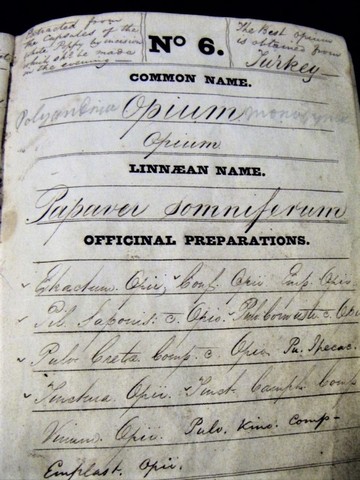 Extracted from
the Capsules of the
white Poppy by incision
which shd be made
in the evening—
No 6.
The Best opium
is obtained from
Turkey—
COMMON NAME.
Polyandria Opium monogynia
Opium
LINNÆAN NAME.
Papaver somniferum
OFFICINAL PREPARATIONS.
Extractum Opii, Conf. Opii Emp. Opii
Pil. Saponis c. Opio. Pulv Cornu c. Opio
Pulv Creta Comp. c Opio, Pu. Ipecac.
Tinctura Opii. Tinct Camph. Comp
Vinum Opii. Pulv. Kino. Comp—
Emplast. Opii.